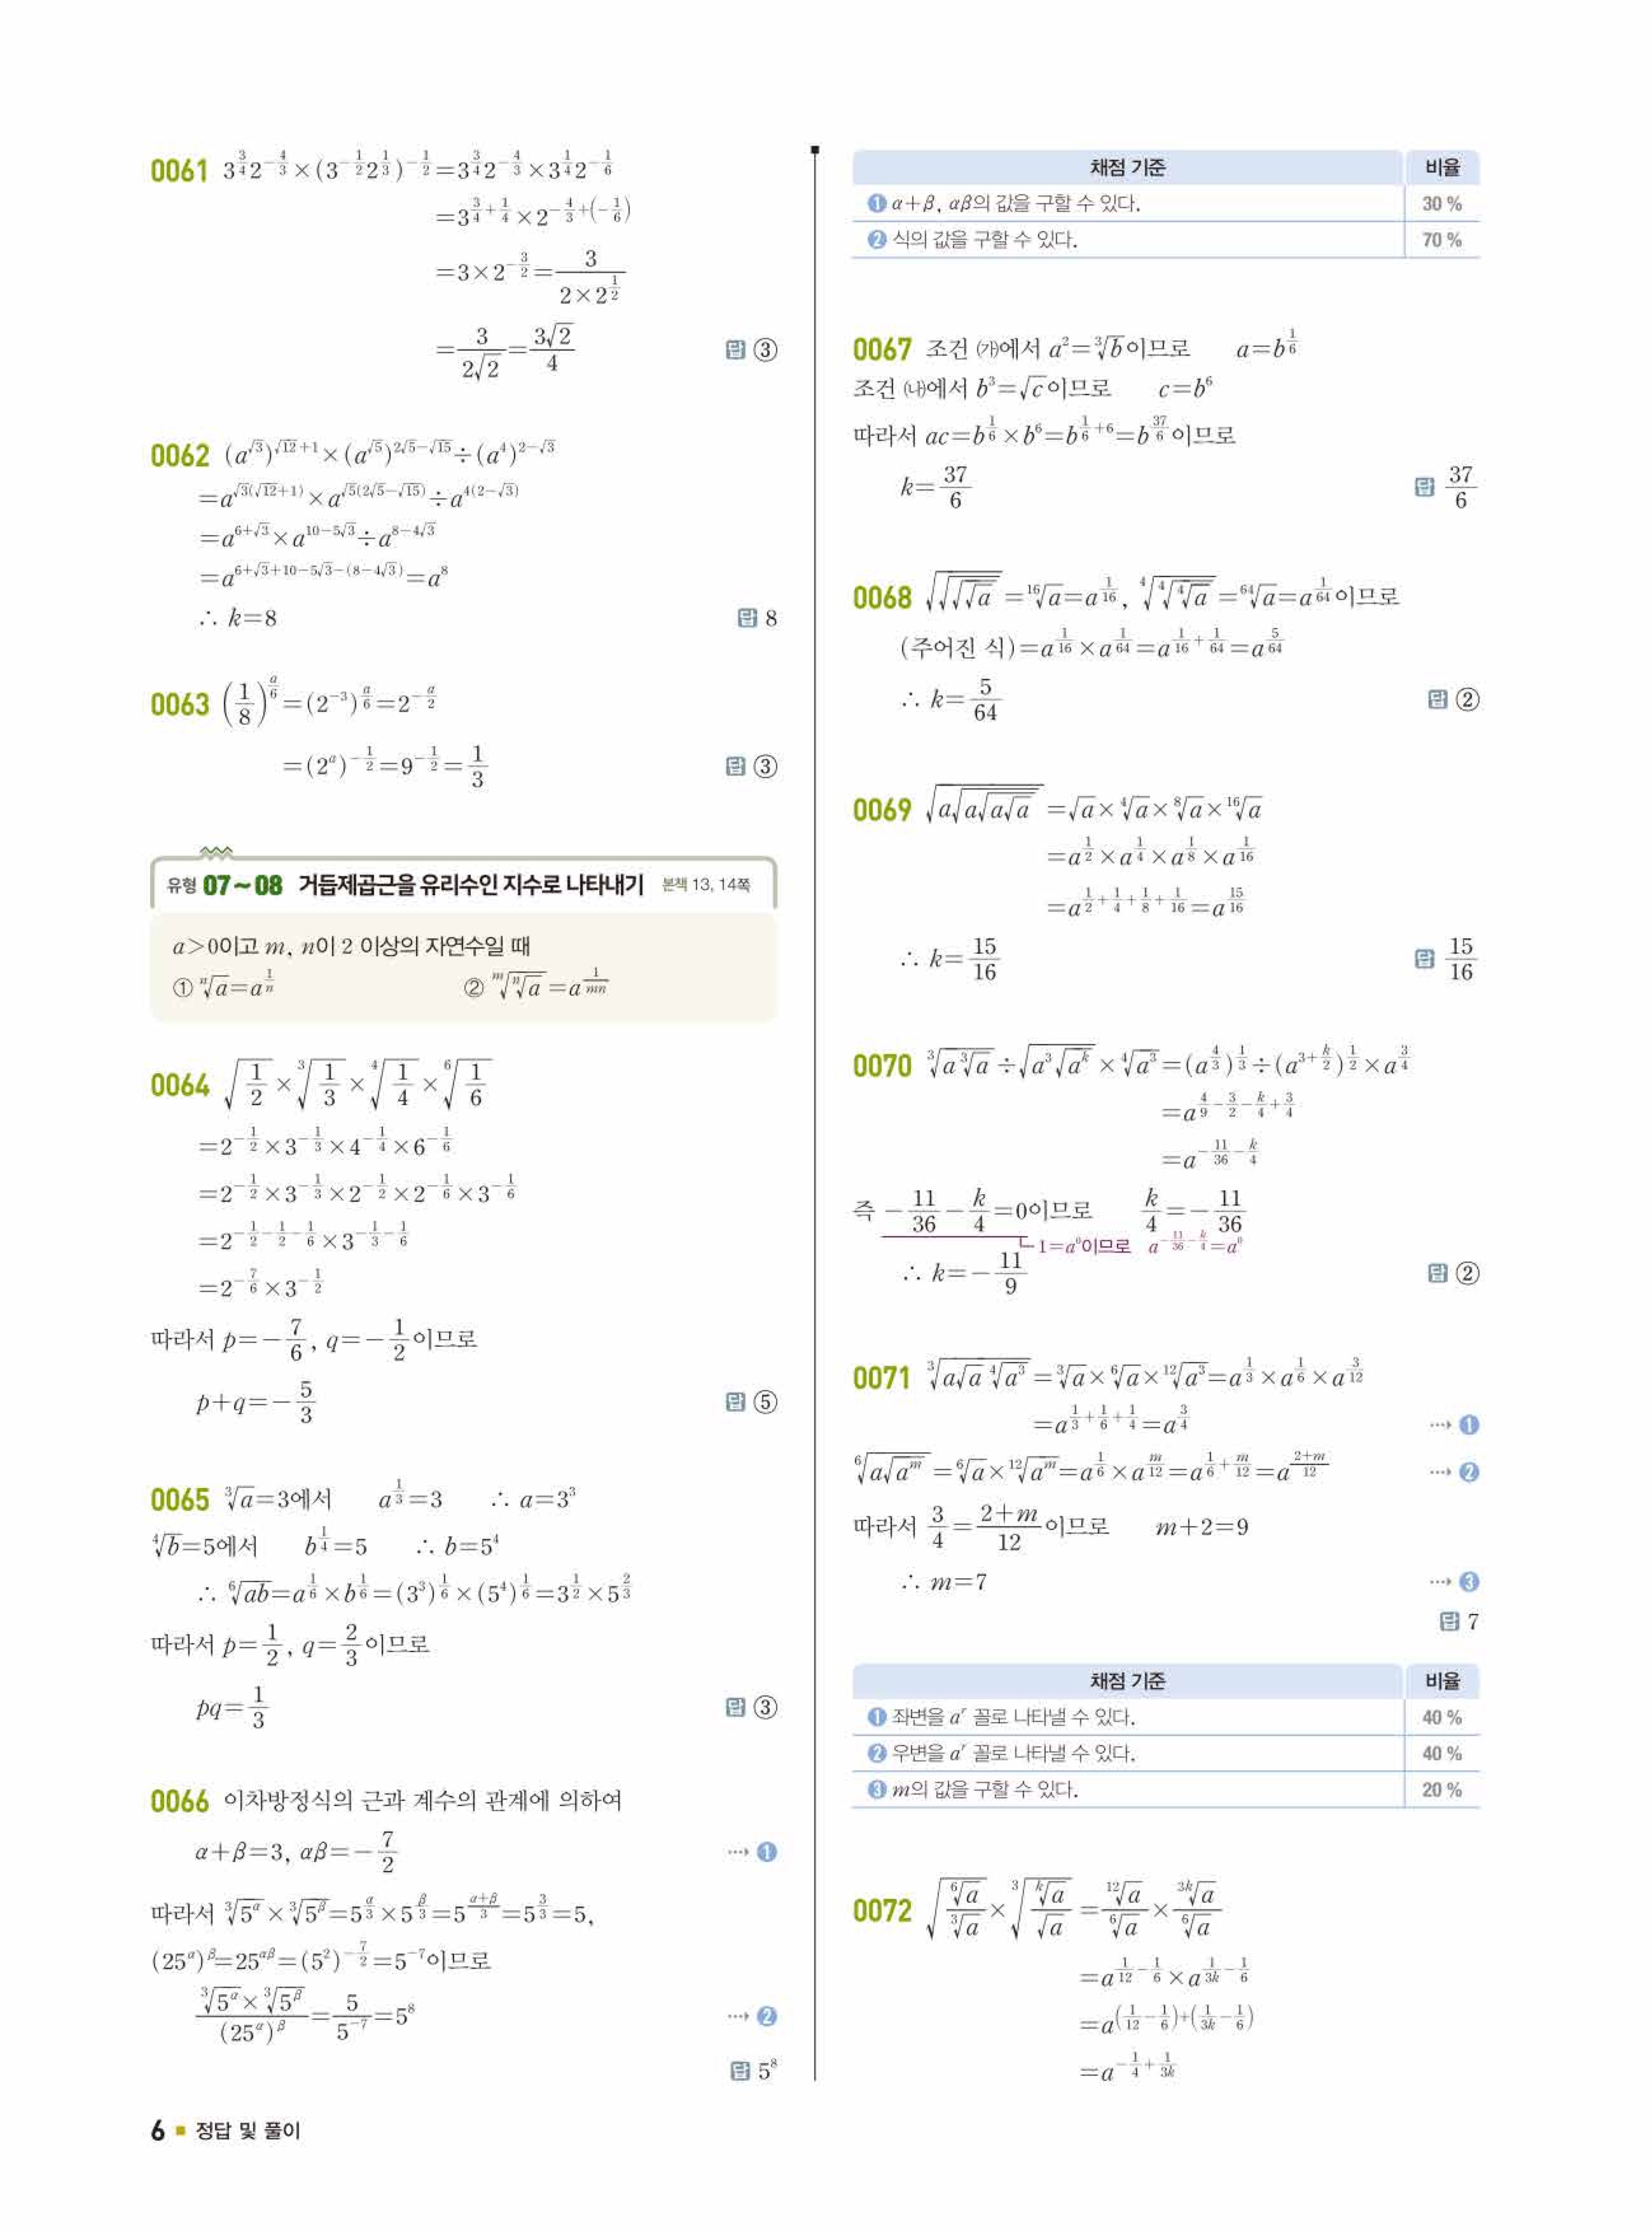 0061 3^{3/4}2^{-4/3}×(3^{-1/2}2^{1/3})^{-1/2}=3^{3/4}2^{-4/3}×3^{1/4}2^{-1/6}
=3^{3/4+1/4}×2^{-4/3+(-1/6)}
=3×2^{-3/2}=3/(2×2^{1/2})
=3/(2√2)=(3√2)/4 답 ③
0062 (a^{√3})^{√12+1}×(a^{√5})^{2√5-√15}÷(a^4)^{2-√3}
=a^{√3(√12+1)}×a^{√5(2√5-√15)}÷a^{4(2-√3)}
=a^{6+√3}×a^{10-5√3}÷a^{8-4√3}
=a^{6+√3+10-5√3-(8-4√3)}=a^8
∴ k=8 답 8
0063 (1/8)^{a/6}=(2^{-3})^{a/6}=2^{-a/2}
=(2^a)^{-1/2}=9^{-1/2}=1/3 답 ③
유형 07~08 거듭제곱근을 유리수인 지수로 나타내기 본책 13, 14쪽
a>0이고 m, n이 2 이상의 자연수일 때
① ⁿ√a=a^{1/n} ② ᵐ√(ⁿ√a)=a^{1/mn}
0064 √(1/2)×³√(1/3)×⁴√(1/4)×⁶√(1/6)
=2^{-1/2}×3^{-1/3}×4^{-1/4}×6^{-1/6}
=2^{-1/2}×3^{-1/3}×2^{-1/2}×2^{-1/6}×3^{-1/6}
=2^{-1/2-1/2-1/6}×3^{-1/3-1/6}
=2^{-7/6}×3^{-1/2}
따라서 p=-7/6, q=-1/2이므로
p+q=-5/3 답 ⑤
0065 ³√a=3에서 a^{1/3}=3 ∴ a=3³
⁴√b=5에서 b^{1/4}=5 ∴ b=5⁴
∴ ⁶√(ab)=a^{1/6}×b^{1/6}=(3³)^{1/6}×(5⁴)^{1/6}=3^{1/2}×5^{2/3}
따라서 p=1/2, q=2/3이므로
pq=1/3 답 ③
0066 이차방정식의 근과 계수의 관계에 의하여
α+β=3, αβ=-7/2 ⋯→ ❶
따라서 ³√(5^α)×³√(5^β)=5^{α/3}×5^{β/3}=5^{(α+β)/3}=5^{3/3}=5,
(25^α)^β=25^{αβ}=(5²)^{-7/2}=5^{-7}이므로
(³√(5^α)×³√(5^β))/(25^α)^β=5/5^{-7}=5⁸ ⋯→ ❷
답 5⁸
6 ▪ 정답 및 풀이
채점 기준 비율
❶ α+β, αβ의 값을 구할 수 있다. 30 %
❷ 식의 값을 구할 수 있다. 70 %
0067 조건 ㈎에서 a²=³√b이므로 a=b^{1/6}
조건 ㈏에서 b³=√c이므로 c=b⁶
따라서 ac=b^{1/6}×b⁶=b^{1/6+6}=b^{37/6}이므로
k=37/6 답 37/6
0068 √(√(√(√a)))=¹⁶√a=a^{1/16}, ⁴√(⁴√(⁴√a))=⁶⁴√a=a^{1/64}이므로
(주어진 식)=a^{1/16}×a^{1/64}=a^{1/16+1/64}=a^{5/64}
∴ k=5/64 답 ②
0069 √(a√(a√(a√a)))=√a×⁴√a×⁸√a×¹⁶√a
=a^{1/2}×a^{1/4}×a^{1/8}×a^{1/16}
=a^{1/2+1/4+1/8+1/16}=a^{15/16}
∴ k=15/16 답 15/16
0070 ³√(a³√a)÷√(a³√(a^k))×⁴√(a³)=(a^{4/3})^{1/3}÷(a^{3+k/2})^{1/2}×a^{3/4}
=a^{4/9-3/2-k/4+3/4}
=a^{-11/36-k/4}
즉 -11/36-k/4=0이므로 k/4=-11/36
1=a⁰이므로 a^{-11/36-k/4}=a⁰
∴ k=-11/9 답 ②
0071 ³√(a√a ⁴√(a³))=³√a×⁶√a×¹²√(a³)=a^{1/3}×a^{1/6}×a^{3/12}
=a^{1/3+1/6+1/4}=a^{3/4} ⋯→ ❶
⁶√(a√(a^m))=⁶√a×¹²√(a^m)=a^{1/6}×a^{m/12}=a^{1/6+m/12}=a^{(2+m)/12} ⋯→ ❷
따라서 3/4=(2+m)/12이므로 m+2=9
∴ m=7 ⋯→ ❸
답 7
채점 기준 비율
❶ 좌변을 a^r 꼴로 나타낼 수 있다. 40 %
❷ 우변을 a^r 꼴로 나타낼 수 있다. 40 %
❸ m의 값을 구할 수 있다. 20 %
0072 √(⁶√a/³√a)×³√(ᵏ√a/√a)=¹²√a/⁶√a×³ᵏ√a/⁶√a
=a^{1/12-1/6}×a^{1/3k-1/6}
=a^{(1/12-1/6)+(1/3k-1/6)}
=a^{-1/4+1/3k}